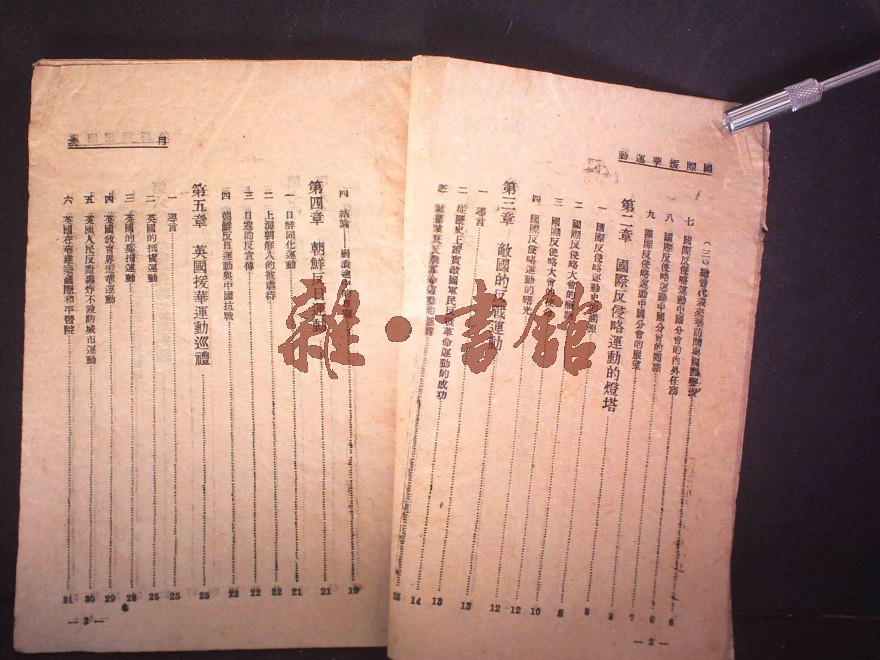 國際援華運動
七 國際反侵略運動中國分會的
八 國際反侵略運動中國分會的內外任務
九 國際反侵略運動中國分會的展望
第二章 國際反侵略運動的燈塔
一 國際反侵略運動史
二 國際反侵略大會的
三 國際反侵略大會的
四 國際反侵略運動的曙光
第三章 敵國的反戰運動
一 導言
二 從歷史上證實敵國軍民反戰革命運動的成功
5
6
7
8
8
8
10
12
12
13
13
14
— 2 —
目
四 結論
第四章 朝鮮反日運動
一 日鮮同化運動
二 上海朝鮮人的被虐待
三 日寇的反宣傳
四 朝鮮反日運動與中國抗戰
第五章 英國援華運動巡禮
一 導言
二 英國的抵貨運動
三 英國的募捐運動
四 英國教會界援華運動
五 英國人民反對轟炸不設防城市運動
六 英國在華建築護與和平醫院
19
21
21
22
22
23
25
25
25
28
29
30
31
— 3 —
雜·書館